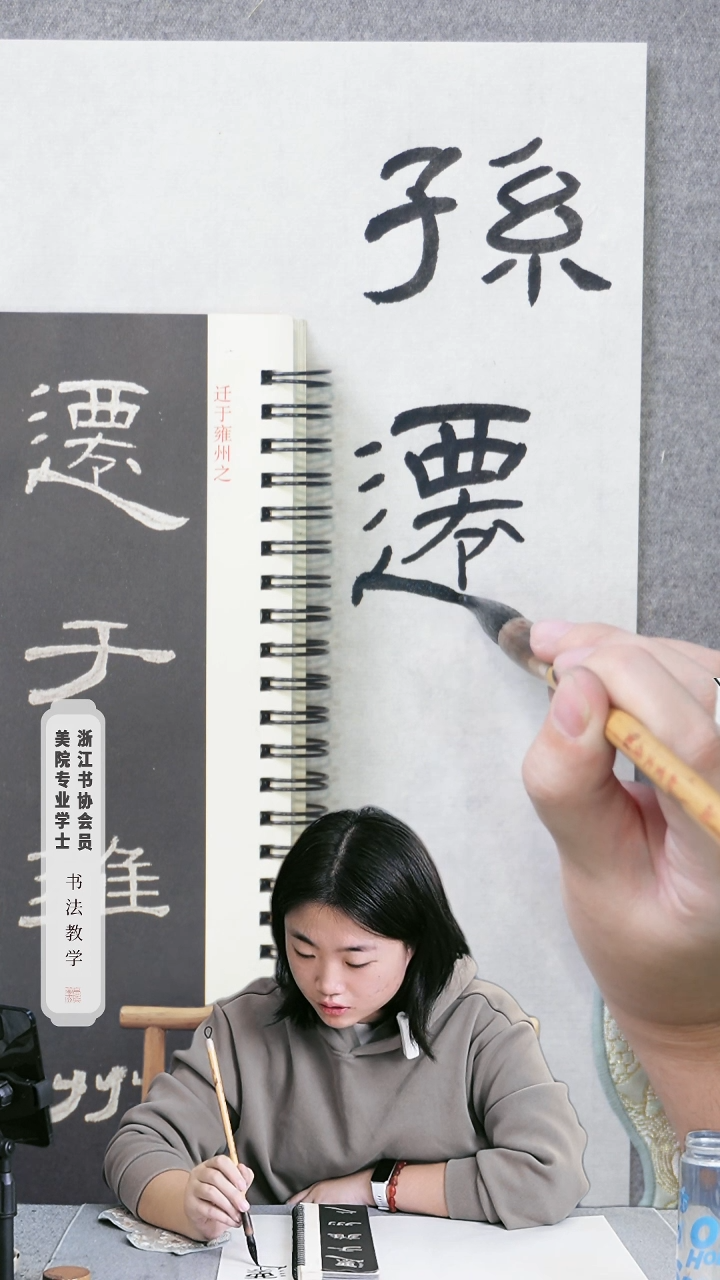 孫遷
迁于雍州之
遷于雍州
浙江书协会员
美院专业学士
书法教学